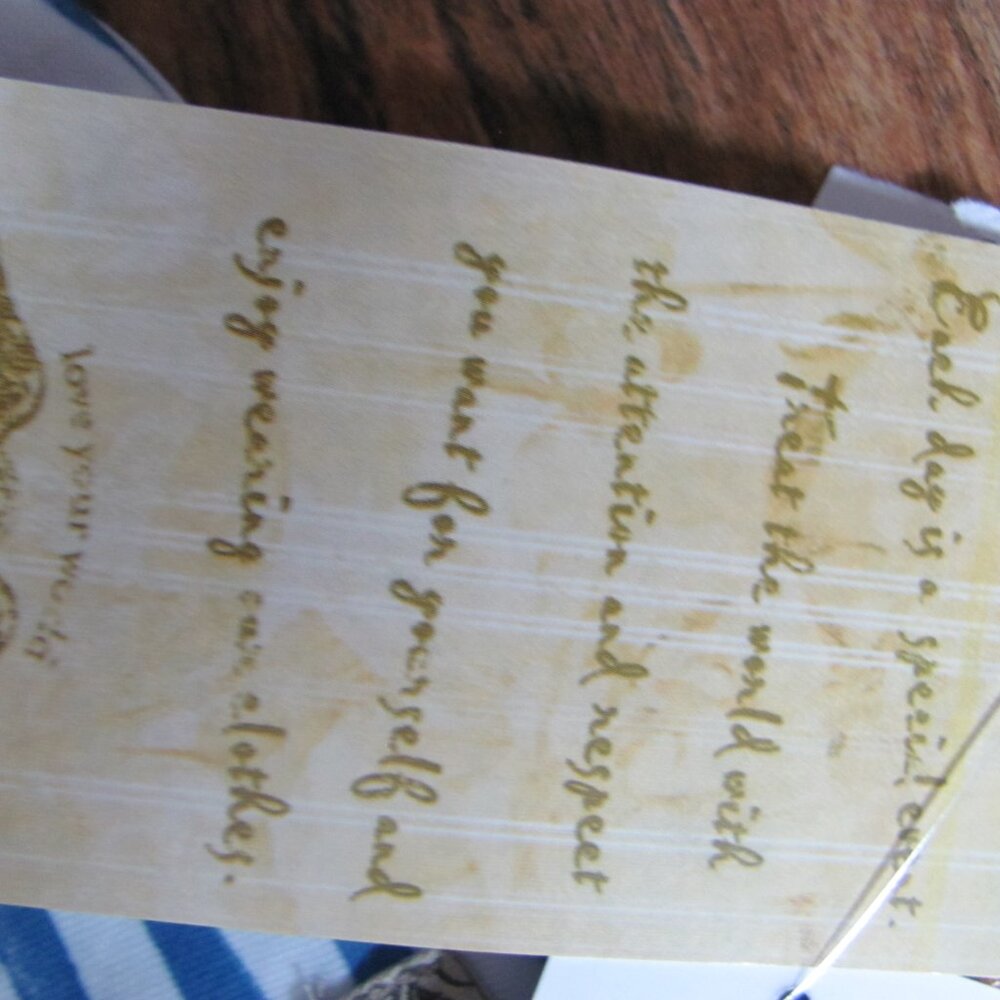 Each day is a special event.
Treat the world with
the attention and respect
you want for yourself and
enjoy wearing our clothes.
love your